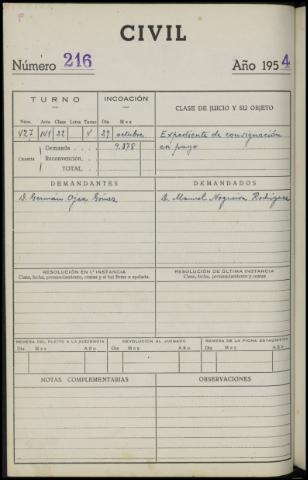 CIVIL
Número 216 Año 1954
TURNO INCOACIÓN CLASE DE JUICIO Y SU OBJETO
Núm. Año Clase Letra Turno Día Mes
22 V 29 octubre Expediente de consignación
Cuantía Demanda 9.378 en pago
Reconvención.
TOTAL.
DEMANDANTES DEMANDADOS
D. Germán Ojea Gómez D. Manuel Nogueira Rodríguez
RESOLUCIÓN EN 1.ª INSTANCIA RESOLUCIÓN DE ÚLTIMA INSTANCIA
Clase, fecha, pronunciamiento, costas y si fué firme o apelada. Clase, fecha, pronunciamiento y costas
REMESA DEL PLEITO A LA AUDIENCIA DEVOLUCIÓN AL JUZGADO REMESA DE LA FICHA ESTADÍSTICA
Día Mes Año Día Mes Año Día Mes Año
NOTAS COMPLEMENTARIAS OBSERVACIONES